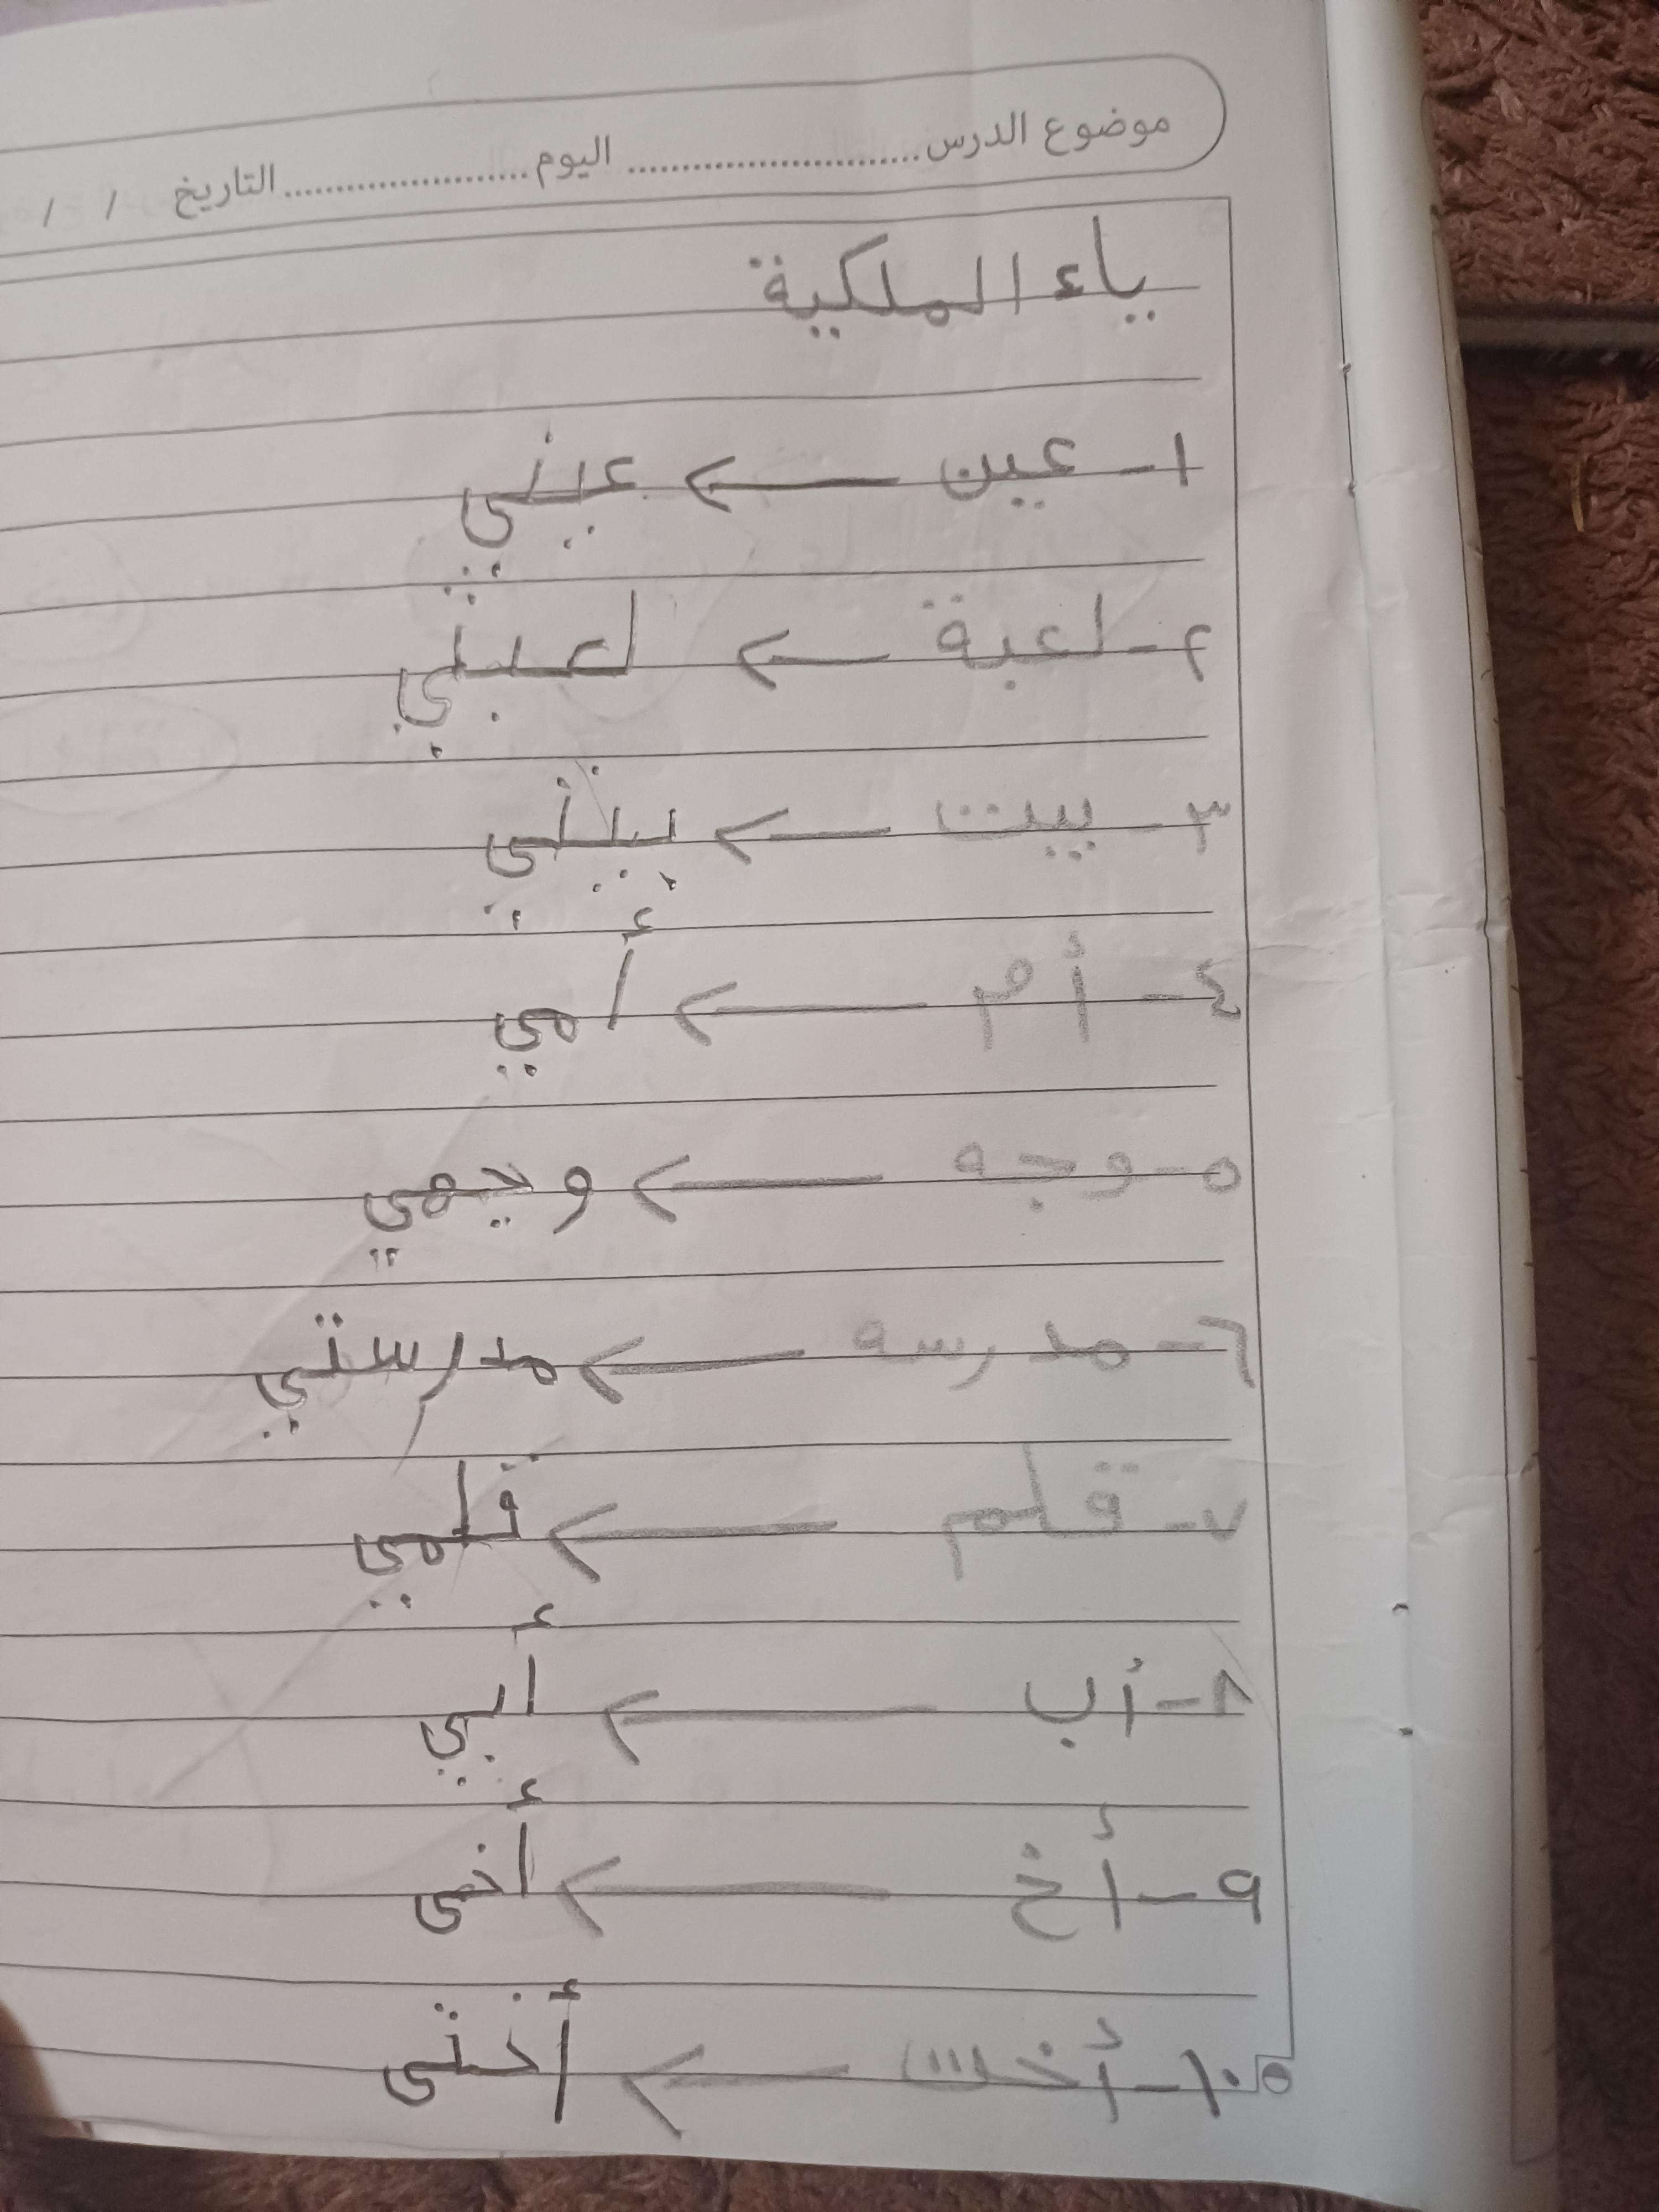 موضوع الدرس ............................ اليوم ........................ التاريخ / /
ياء الملكية
١- عين ← عيني
٢- لعبة ← لعبتي
٣- بيت ← بيتي
٤- أم ← أمي
٥- وجه ← وجهي
٦- مدرسه ← مدرستي
٧- قلم ← قلمي
٨- أب ← أبي
٩- أخ ← أخى
١٠- أخت ← أختى